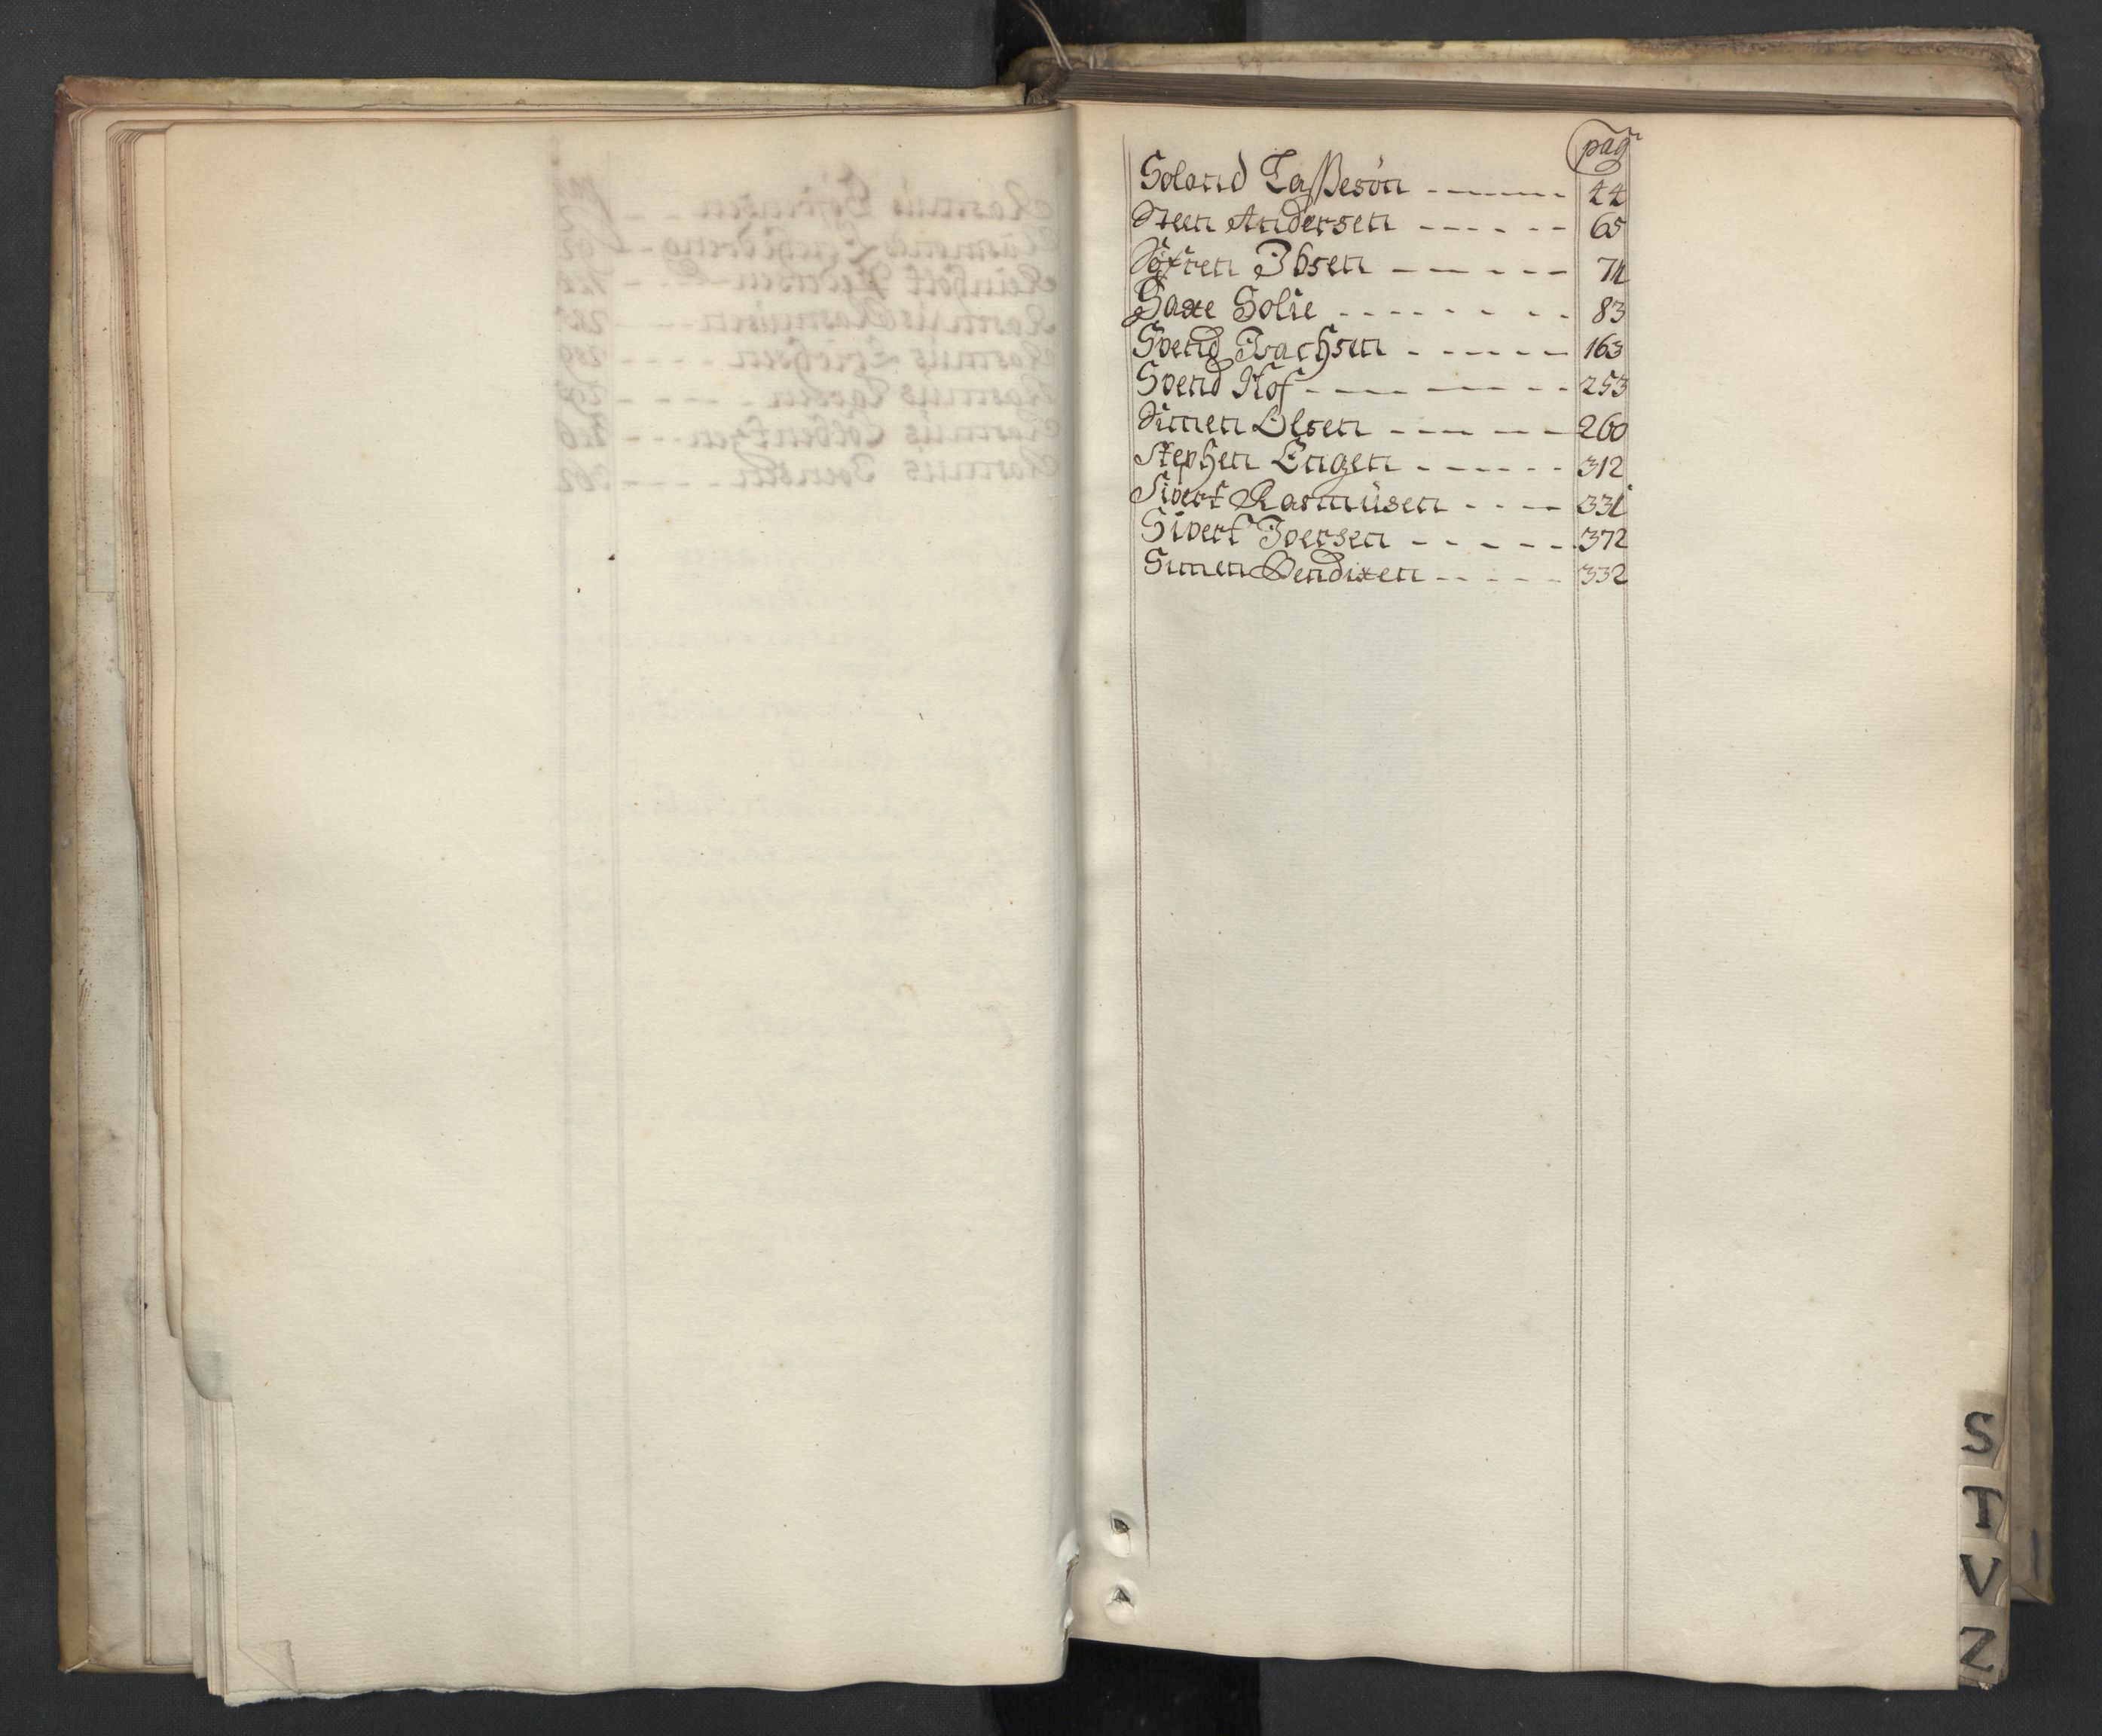 pag
Soland Taßesøn - - - - - 44
Steen Andersen - - - - - - 65
Søfren Ibsen - - - - - 74
Saxe Solie - - - - - - - - 83
Svend Isachsen - - - - - - 163
Svend Hof - - - - - - - 253
Simen Olsen - - - - - - 260
Stephen Engen - - - - - - 312
Sivert Rasmüsen - - - - 331
Sivert Iversen - - - - - - 372
Simen Bendixen - - - - - 332
S
T
V
Z